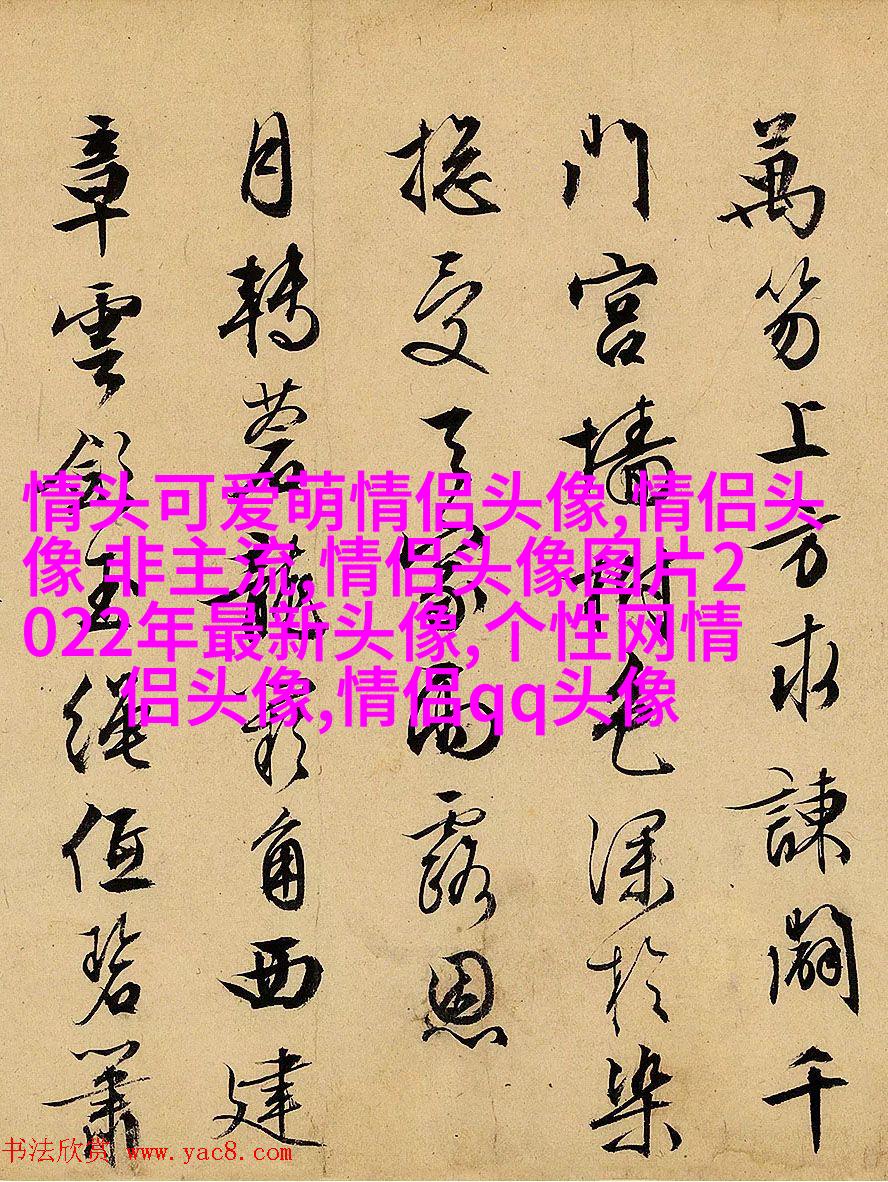 萬笏上方求諫闢千
門宮墻樹色深於染
總受天家雨露恩
月轉蒼龍闕角西建
章雲斂玉繩低碧簫
情头可爱萌情侣头像,情侣头
像 非主流,情侣头像图片2
022年最新头像,个性网情
侣头像,情侣qq头像
书法欣赏 www.yac8.com